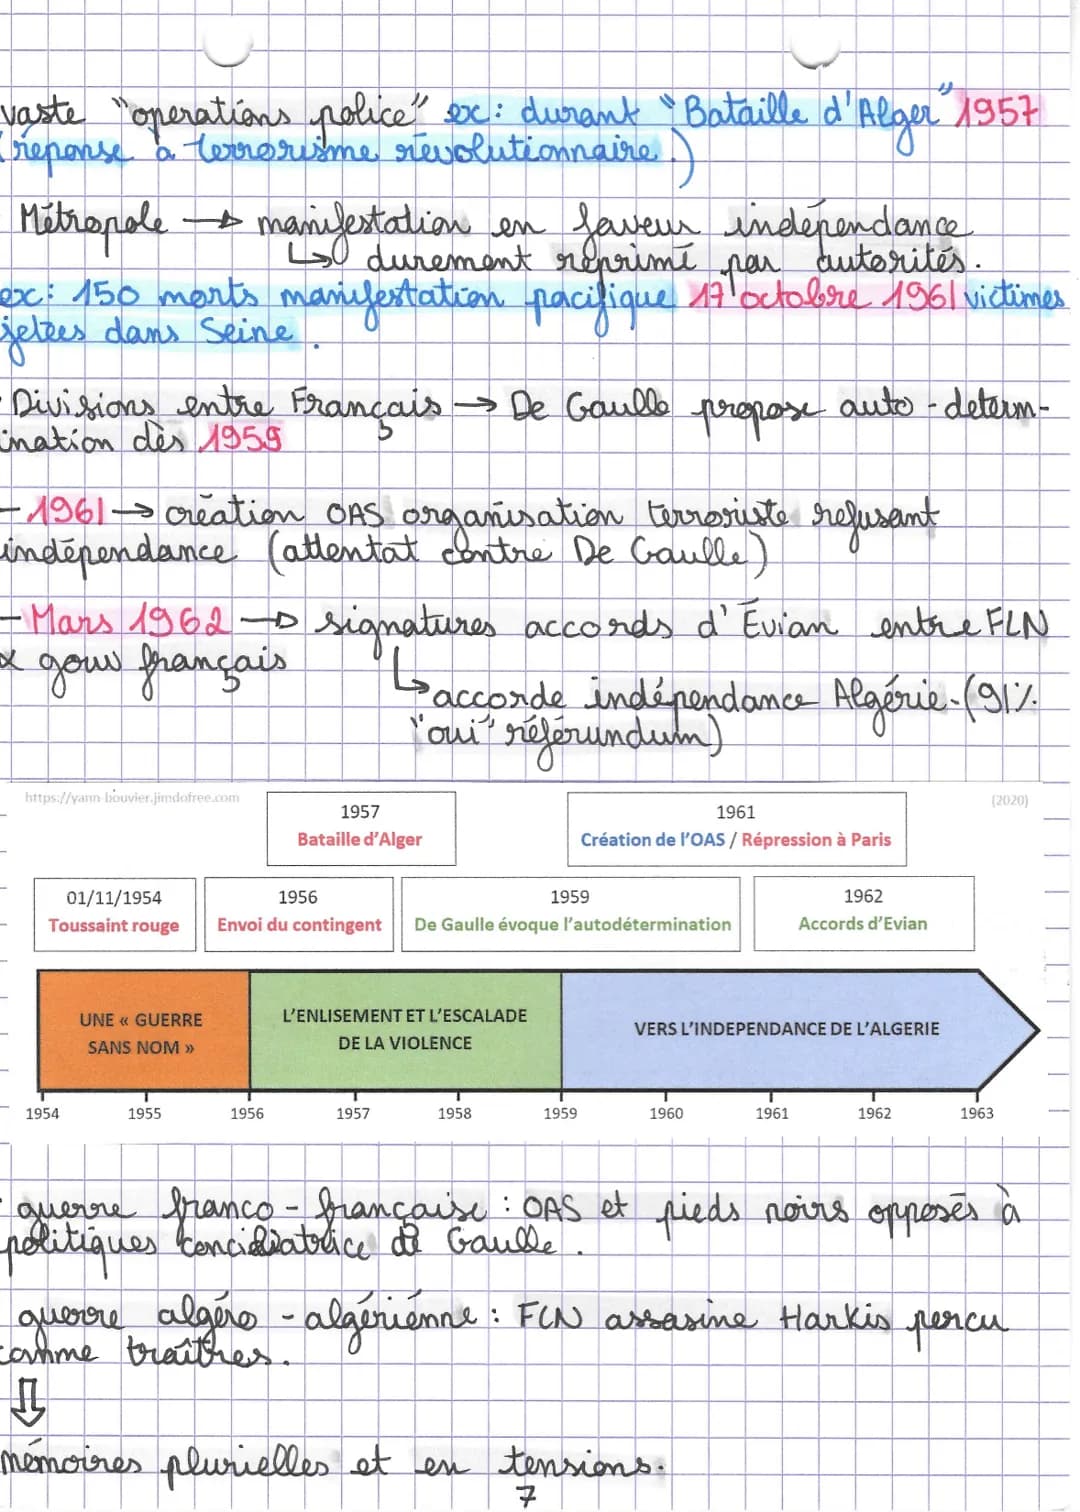 vaste "operations police" ex: durant "Bataille d'Alger" 1957
(réponse à terrorisme révolutionnaire.)
Métropole → manifestation en faveur indépendance
↳ durement réprimé par autorités.
ex: 150 morts manifestation pacifique 17 octobre 1961 victimes
jetées dans Seine.
- Divisions entre Français → De Gaulle propose auto-déterm-
ination dès 1959
- 1961 → création OAS organisation terroriste refusant
indépendance (attentat contre De Gaulle)
- Mars 1962 → signatures accords d'Évian entre FLN
& gouv français
↳ accorde indépendance Algérie. (91%
"oui" référundum)
https://yann-bouvier.jimdofree.com
(2020)
1957
Bataille d'Alger
1961
Création de l'OAS / Répression à Paris
01/11/1954
Toussaint rouge
1956
Envoi du contingent
1959
De Gaulle évoque l'autodétermination
1962
Accords d'Evian
UNE « GUERRE
SANS NOM »
L'ENLISEMENT ET L'ESCALADE
DE LA VIOLENCE
VERS L'INDEPENDANCE DE L'ALGERIE
1954 1955 1956 1957 1958 1959 1960 1961 1962 1963
- guerre franco-française : OAS et pieds noirs opposés à
politiques concidiatrice de Gaulle.
guerre algéro-algérienne : FLN assasine Harkis percu
comme traîtres.
⇓
mémoires plurielles et en tensions.
7